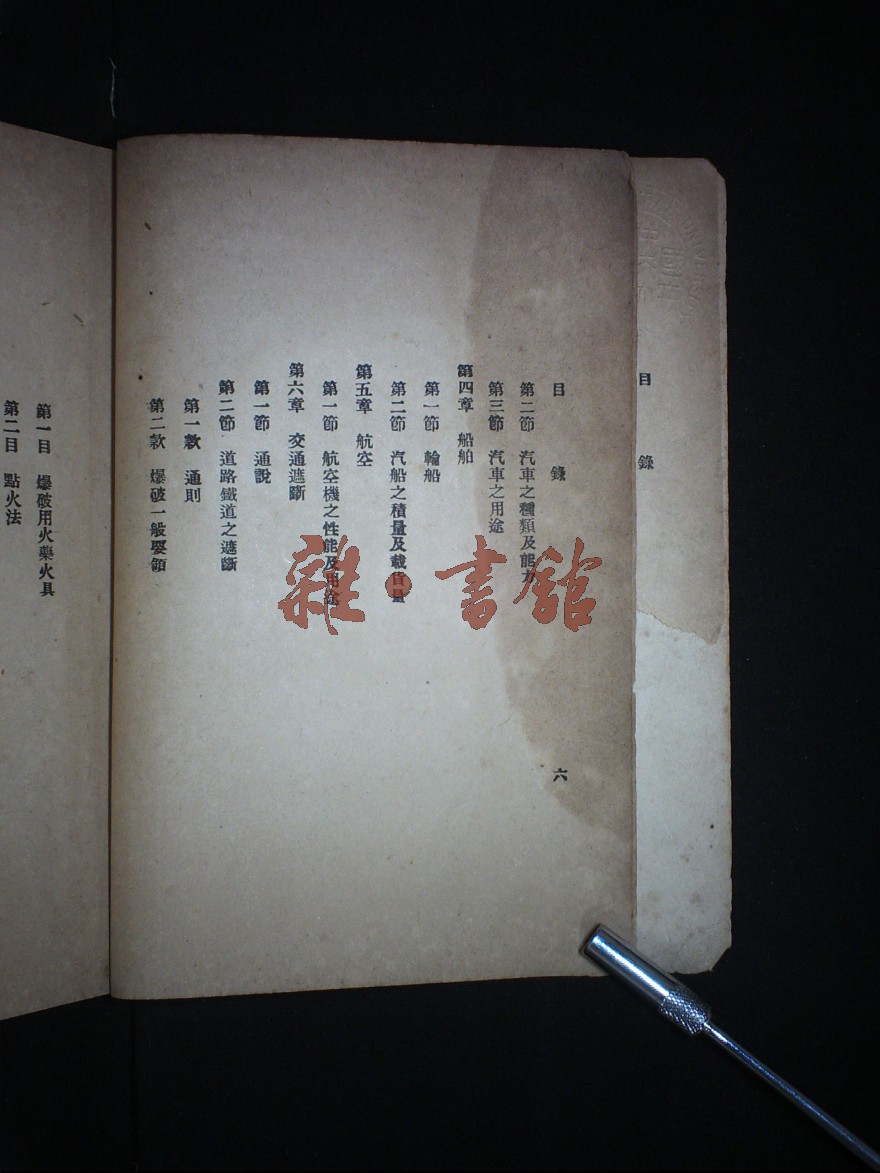 目錄
目錄
六
第二節 汽車之種類及能力
第三節 汽車之用途
第四章 船舶
第一節 輪船
第二節 汽船之積量及載貨量
第五章 航空
第一節 航空機之性能及用途
第六章 交通遮斷
第一節 通說
第二節 道路鐵道之遮斷
第一款 通則
第二款 爆破一般要領
第一目 爆破用火藥火具
第二目 點火法
雜·書館